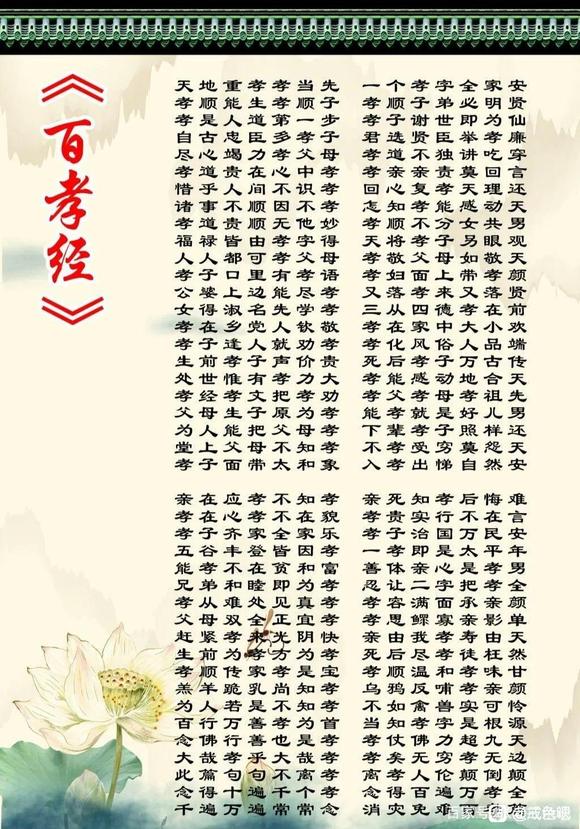 《百孝经》
天地重孝孝当先 一个孝字全家安
孝顺能生孝顺子 孝顺子弟必明贤
孝是人道第一步 孝子谢世即为仙
自古忠臣多孝子 君选贤臣举孝廉
尽心竭力孝父母 孝道不独讲吃穿
孝道贵在心中孝 孝亲亲责莫回言
惜乎人间不识孝 回心复孝天理还
诸事不顺因不孝 怎知孝能感动天
孝道贵顺无他妙 孝顺不分女共男
福禄皆由孝字得 天将孝子另眼观
人人都可孝父母 孝敬父母如敬天
孝子口里有孝语 孝妇面上带孝颜
公婆上边能尽孝 又落孝来又落贤
女得淑名先学孝 三从四德孝在前
孝在乡党人钦敬 孝在家中大小欢
孝子逢人就劝孝 孝化风俗人品端
生前孝子声价贵 死后孝子万古传
处世惟有孝力大 孝能感动地合天
孝经孝文把孝劝 孝父孝母孝祖先
父母生子原为孝 能孝就是好儿男
为人能把父母孝 下辈孝子照样还
堂上父母不知孝 不孝受穷莫怨天
孝子面带太和象 入孝出悌自然安
亲在应孝不知孝 亲死知孝后悔难
孝在心孝不在貌 孝贵实行不在言
孝子齐家全家乐 孝子治国万民安
五谷丰登皆因孝 一孝即是太平年
能孝不在贫和富 善体亲心是孝男
兄弟和睦即为孝 忍让二字把孝全
孝从难处见真孝 孝容满面承亲颜
父母双全正宜孝 孝思鳏寡亲影单
赶紧孝来光阴快 亲由我孝寿由天
生前为孝方为孝 死后尽孝徒枉然
孝顺传家孝是宝 孝顺温和孝味甘
羔羊跪乳尚知孝 乌鸦反哺孝亲颜
为人若是不知孝 不如禽兽实可怜
百行万善孝为首 当知孝字是根源
念佛行善也是孝 孝仗佛力超九天
大哉孝乎大哉孝 孝矣无穷孝无边
此篇句句不离孝 离孝人伦颠倒颠
念得十遍千个孝 念得百遍万孝全
千遍万遍常常念 消灾免难百孝
百家号 @戒色嗯